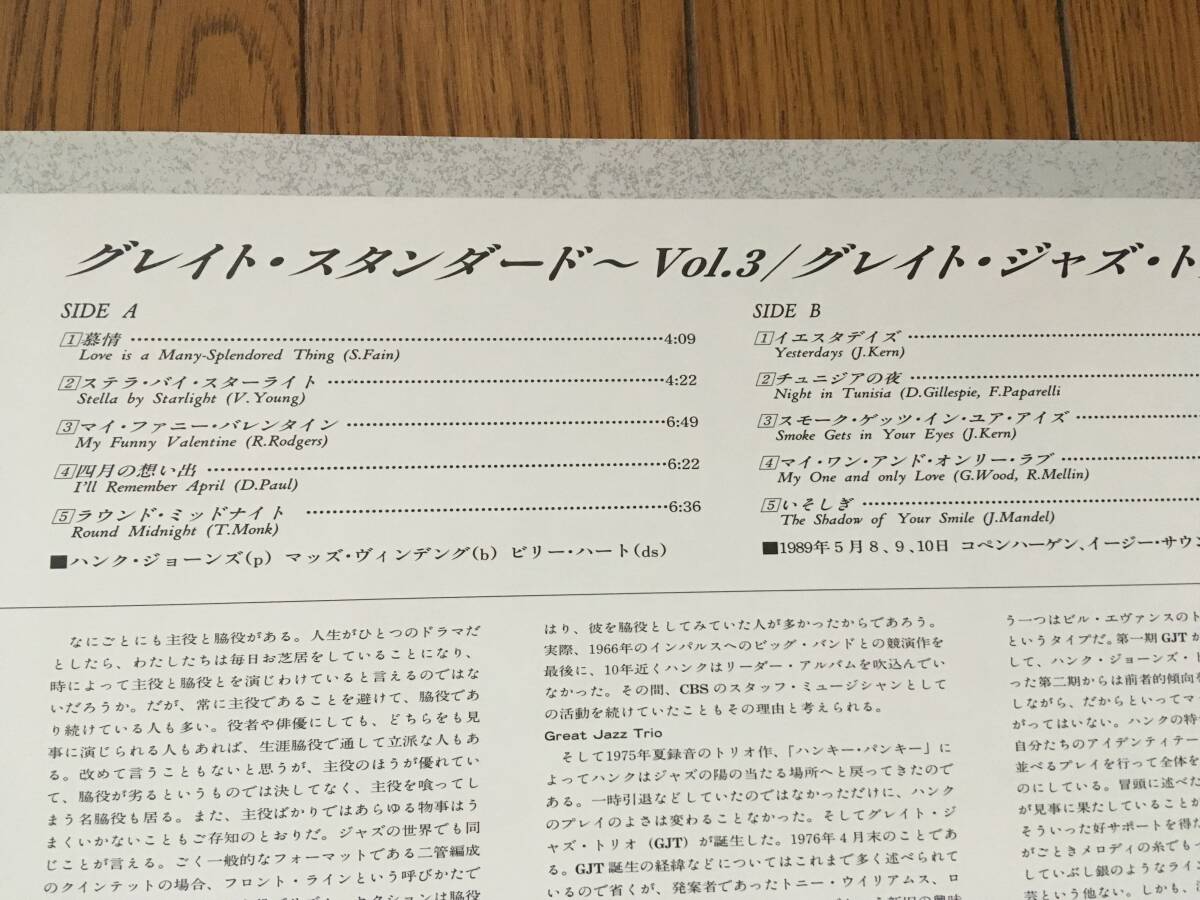 グレイト・スタンダード～Vol.3/グレイト・ジャズ・ト
SIDE A
1 慕情 ……4:09
Love is a Many-Splendored Thing (S.Fain)
2 ステラ・バイ・スターライト ……4:22
Stella by Starlight (V.Young)
3 マイ・ファニー・バレンタイン ……6:49
My Funny Valentine (R.Rodgers)
4 四月の想い出 ……6:22
I'll Remember April (D.Paul)
5 ラウンド・ミッドナイト ……6:36
Round Midnight (T.Monk)
■ハンク・ジョーンズ(p) マッズ・ヴィンデング(b) ビリー・ハート(ds)
SIDE B
1 イエスタデイズ ……
Yesterdays (J.Kern)
2 チュニジアの夜 ……
Night in Tunisia (D.Gillespie, F.Paparelli
3 スモーク・ゲッツ・イン・ユア・アイズ ……
Smoke Gets in Your Eyes (J.Kern)
4 マイ・ワン・アンド・オンリー・ラブ ……
My One and only Love (G.Wood, R.Mellin)
5 いそしぎ ……
The Shadow of Your Smile (J.Mandel)
■1989年5月8、9、10日 コペンハーゲン、イージー・サウン
なにごとにも主役と脇役がある。人生がひとつのドラマだ
としたら、わたしたちは毎日お芝居をしていることになり、
時によって主役と脇役とを演じわけていると言えるのではな
いだろうか。だが、常に主役であることを避けて、脇役であ
り続けている人も多い。役者や俳優にしても、どちらをも見
事に演じられる人もあれば、生涯脇役で通して立派な人もあ
る。改めて言うこともないと思うが、主役のほうが優れてい
て、脇役が劣るというものでは決してなく、主役を喰ってし
まう名脇役も居る。また、主役ばかりではあらゆる物事はう
まくいかないこともご存知のとおりだ。ジャズの世界でも同
じことが言える。ごく一般的なフォーマットである二管編成
のクインテットの場合、フロント・ラインという呼びかたで
はり、彼を脇役としてみていた人が多かったからであろう。
実際、1966年のインパルスへのビッグ・バンドとの競演作を
最後に、10年近くハンクはリーダー・アルバムを吹込んでい
なかった。その間、CBSのスタッフ・ミュージシャンとして
の活動を続けていたこともその理由と考えられる。
Great Jazz Trio
そして1975年夏録音のトリオ作、「ハンキー・パンキー」に
よってハンクはジャズの陽の当たる場所へと戻ってきたので
ある。一時引退などしていたのではなかっただけに、ハンク
のプレイのよさは変わることなかった。そしてグレイト・ジ
ャズ・トリオ（GJT）が誕生した。1976年4月末のことであ
る。GJT誕生の経緯などについてはこれまで多く述べられて
いるので省くが、発案者であったトニー・ウイリアムス、ロ
う一つはビル・エヴァンスのト
というタイプだ。第一期GJTが
して、ハンク・ジョーンズ・ト
った第二期からは前者的傾向を
しながら、だからといってマ
がってはいない。ハンクの特
自分たちのアイデンティテー
並べるプレイを行って全体を
のにしている。冒頭に述べた
が見事に果たしていることが
そういった好サポートを得た
がごときメロディの糸でもっ
していぶし銀のようなライン
芸という他ない。しかも、